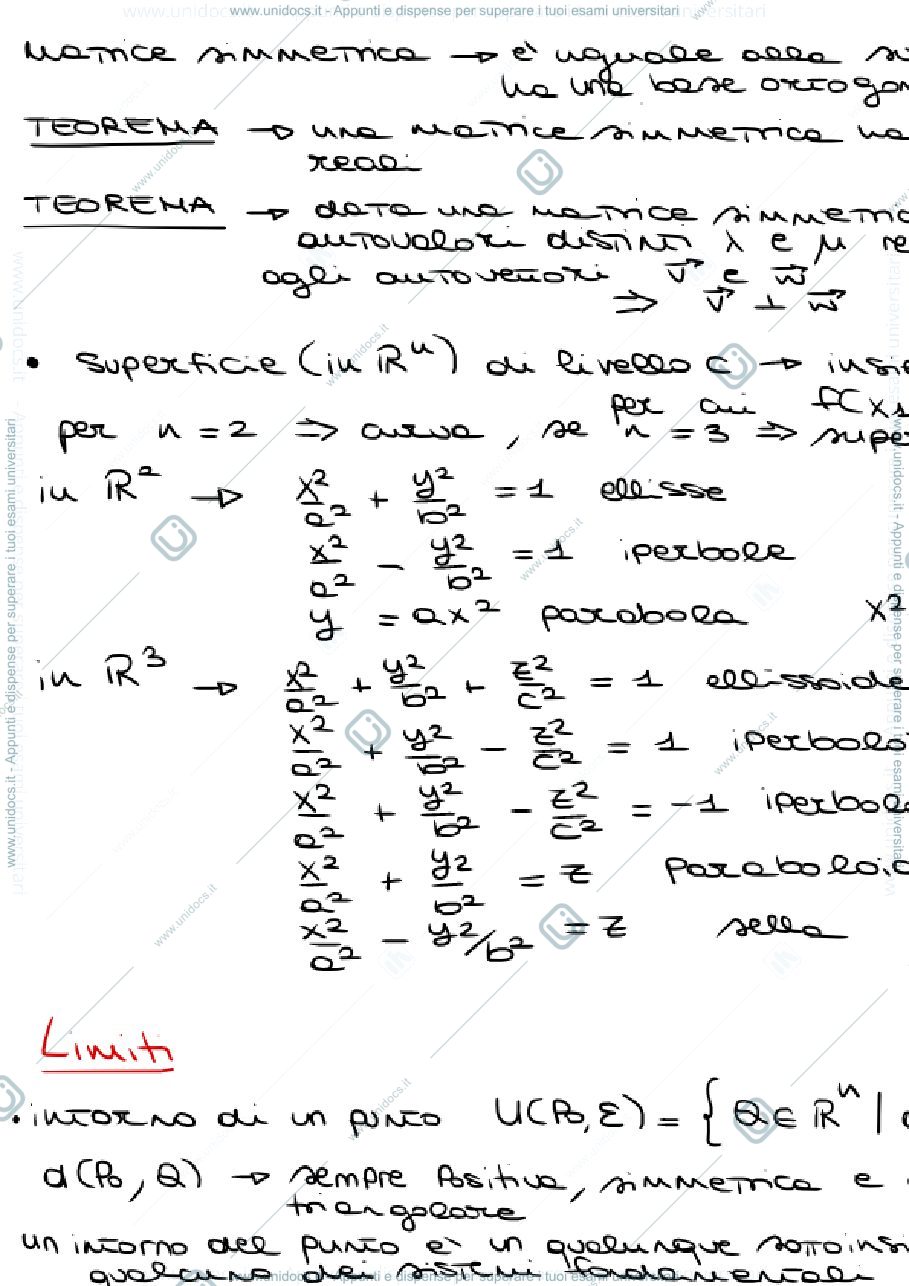 www.unidocs.it - Appunti e dispense per superare i tuoi esami universitari
Matrice simmetrica → è uguale alla su
ha una base ortogon
TEOREMA → una matrice simmetrica ha
reali
TEOREMA → data una matrice simmetric
autovalori distinti λ e μ re
agli autovettori v⃗ e w⃗
⇒ v⃗ ⊥ w⃗
• superficie (in ℝⁿ) di livello c → insie
per cui f(x1
per n = 2 ⇒ curva, se n = 3 ⇒ super
in ℝ² → x²/a² + y²/b² = 1 ellisse
x²/a² - y²/b² = 1 iperbole
y = ax² parabola x²
in ℝ³ → x²/a² + y²/b² + z²/c² = 1 ellissoide
x²/a² + y²/b² - z²/c² = 1 iperboloi
x²/a² + y²/b² - z²/c² = -1 iperbolo
x²/a² + y²/b² = z Paraboloid
x²/a² - y²/b² = z sella
Limiti
• intorno di un punto U(P₀, ε) = { Q ∈ ℝⁿ |
d(P₀, Q) → sempre Positiva, simmetrica e
triangolare
un intorno del punto è un qualunque sottoinsi
qualcuno dei sistemi fondamentali
www.unidocs.it - Appunti e dispense per superare i tuoi esami universitari